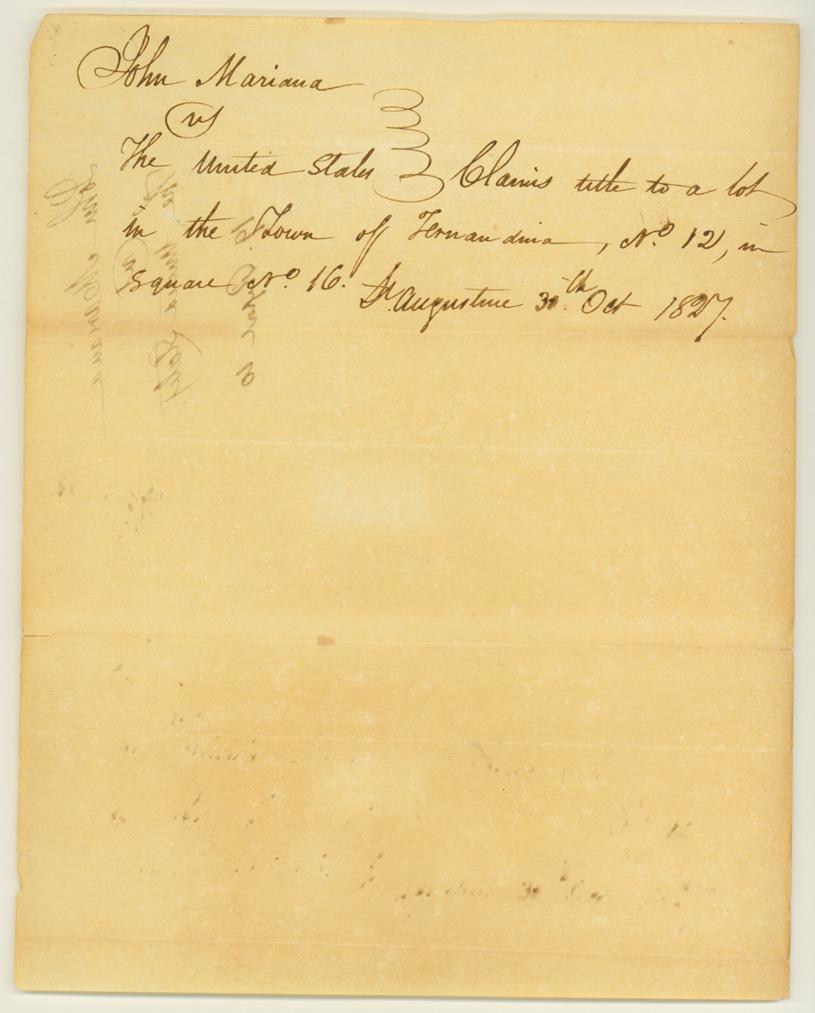 John Mariana
vs
The United States Claims title to a lot
in the Town of Fernandina, No. 12, in
Square No. 16.
St. Augustine 30th. Oct 1827.